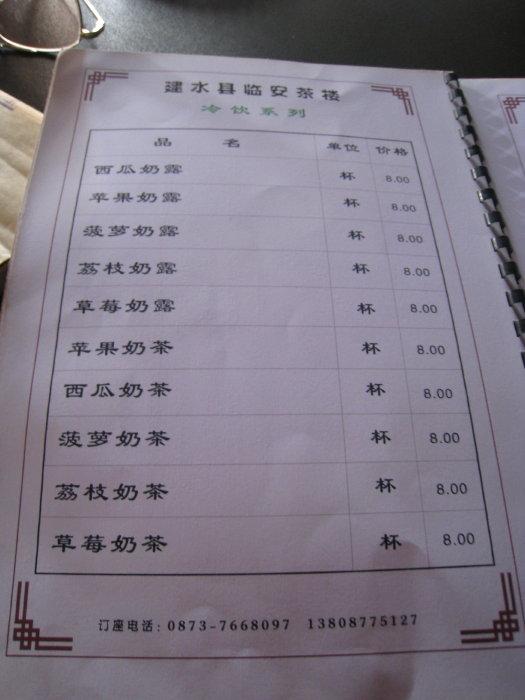 建水县临安茶楼
冷饮系列
品 名 单位 价格
西瓜奶露 杯 8.00
苹果奶露 杯 8.00
菠萝奶露 杯 8.00
荔枝奶露 杯 8.00
草莓奶露 杯 8.00
苹果奶茶 杯 8.00
西瓜奶茶 杯 8.00
菠萝奶茶 杯 8.00
荔枝奶茶 杯 8.00
草莓奶茶 杯 8.00
订座电话：0873-7668097 13808775127